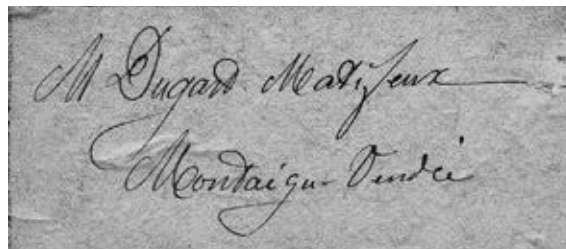 M Dugast Matifeux
Montaigu Vendée